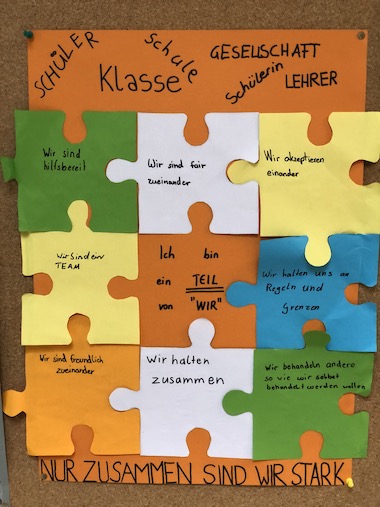 SCHÜLER Schule GESELLSCHAFT
Klasse Schülerin LEHRER
Wir sind
hilfsbereit
Wir sind fair
zueinander
Wir akzeptieren
einander
Wir sind ein
TEAM
Ich bin
ein TEIL
von "WIR"
Wir halten uns an
Regeln und
Grenzen
Wir sind freundlich
zueinander
Wir halten
zusammen
Wir behandeln andere
so wie wir selbst
behandelt werden wollen
NUR ZUSAMMEN SIND WIR STARK